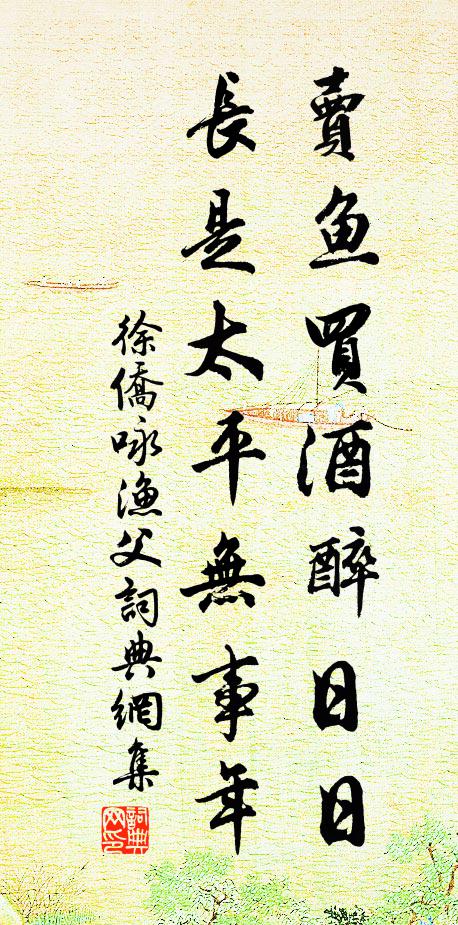 賣魚買酒醉日日
長是太平無事年
徐僑咏漁父詞典網集
詞典
网印